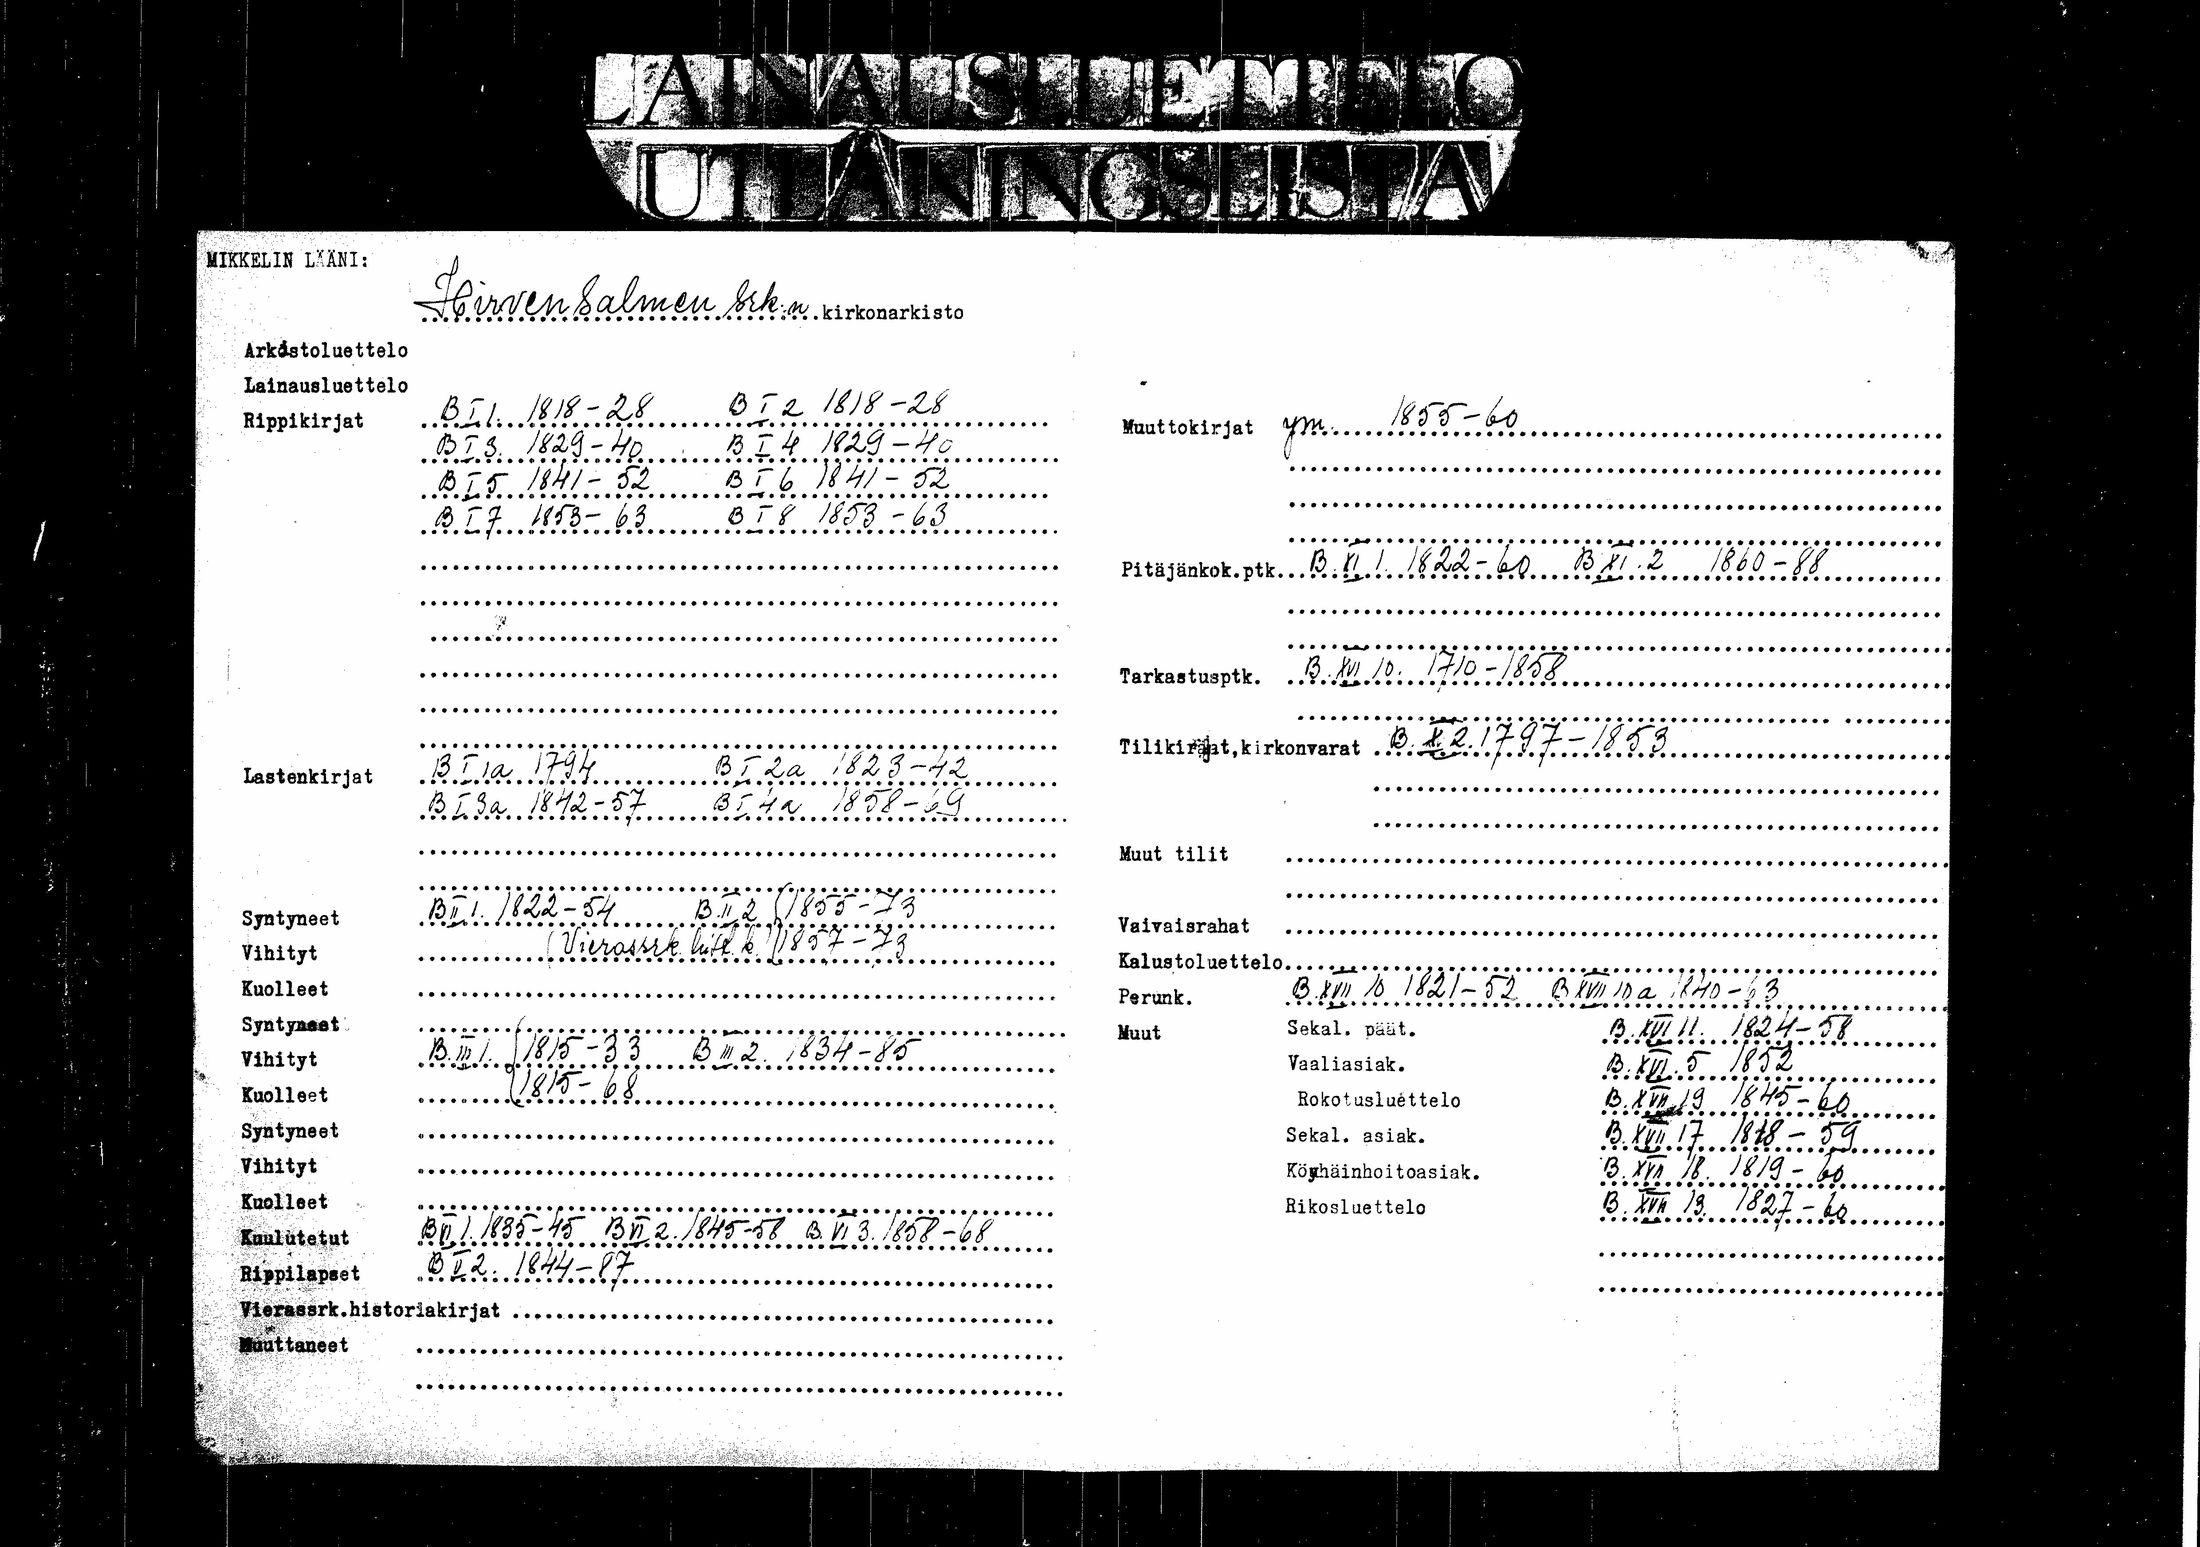 LAINAUSLUETTELO
UTLÅNINGSLISTA
MIKKELIN LÄÄNI:
Hirvensalmen srk:n kirkonarkisto
Arkistoluettelo
Lainausluettelo
Rippikirjat B I 1. 1818-28 B I 2 1818-28
B I 3. 1829-40 B I 4 1829-40
B I 5 1841-52 B I 6 1841-52
B I 7 1853-63 B I 8 1853-63
Lastenkirjat B I 1a 1794 B I 2a 1823-42
B I 3a 1842-57 B I 4a 1858-69
Syntyneet B II 1. 1822-54 B II 2 (1855-73
Vihityt (Vierassrk. hist.k.) 1857-73
Kuolleet
Syntyneet
Vihityt B. III 1. (1815-33 B III 2. 1834-85
Kuolleet (1815-68
Syntyneet
Vihityt
Kuolleet
Kuulutetut B VI 1. 1835-45 B VI 2. 1845-58 B. VI 3. 1858-68
Rippilapset B V 2. 1844-87
Vierassrk.historiakirjat
Muuttaneet
Muuttokirjat ym. 1855-60
Pitäjänkok.ptk. B. XI 1. 1822-60 B XI. 2 1860-88
Tarkastusptk. B. XVI 10. 1710-1858
Tilikirjat,kirkonvarat B. X. 2. 1797-1853
Muut tilit
Vaivaisrahat
Kalustoluettelo
Perunk. B XVII 10 1821-52 B XVII 10a 1840-63
Muut Sekal. päät. B. XVI 11. 1824-58
Vaaliasiak. B. XVI. 5 1852
Rokotusluettelo B. XVII 19 1845-60
Sekal. asiak. B. XVII 17 1818-59
Köyhäinhoitoasiak. B. XVII 18. 1819-60
Rikosluettelo B. XVII 13. 1827-60